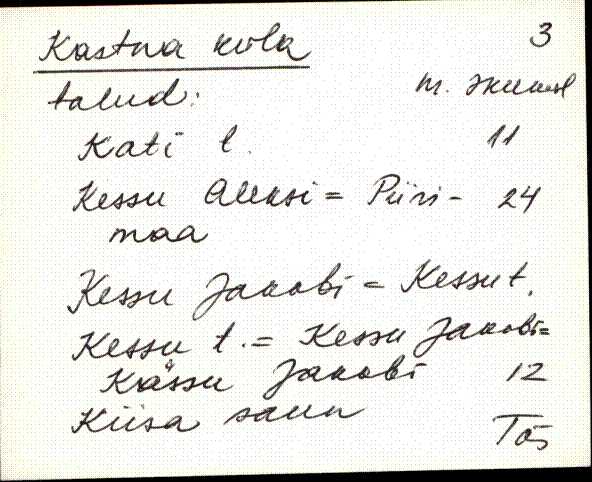 Kastna küla 3
talud:
Kati t. 11
Kessu Aleksi = Piiri- 24
maa
Kessu Jakobi = Kessu t.
Kessu t. = Kessu Jakobi =
Kässu Jakobi 12
Kiisa saun
Tõs